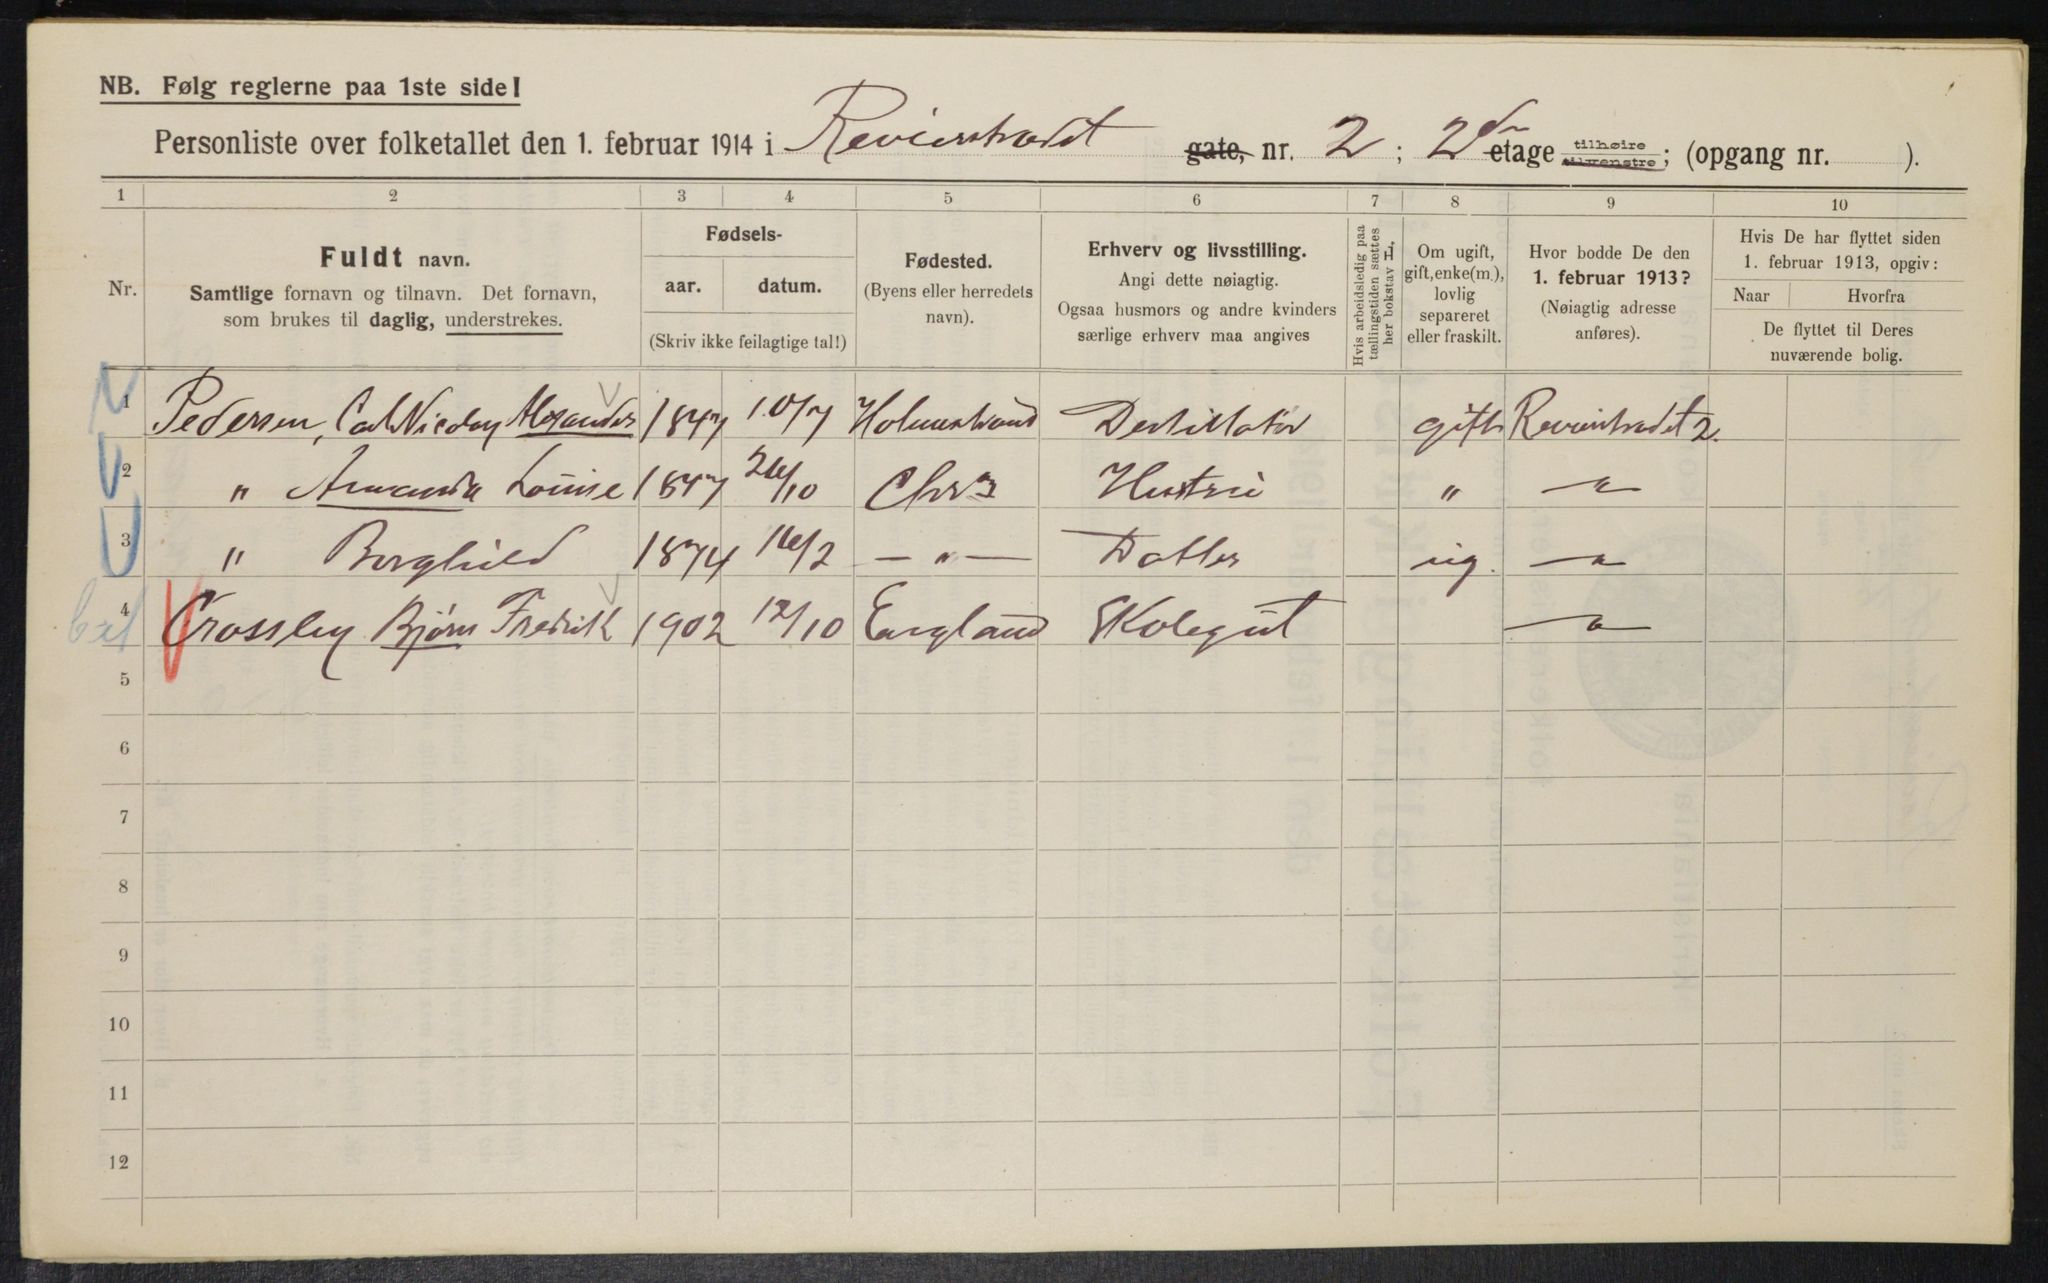 NB. Følg reglerne paa 1ste side!
Personliste over folketallet den 1. februar 1914 i Revierstrædet gate, nr. 2; 2den etage tilhøire tilvenstre; (opgang nr. ).
1 2 3 4 5 6 7 8 9 10
Nr.
Fuldt navn.
Samtlige fornavn og tilnavn. Det fornavn,
som brukes til daglig, understrekes.
Fødsels-
aar. datum.
(Skriv ikke feilagtige tal!)
Fødested.
(Byens eller herredets
navn).
Erhverv og livsstilling.
Angi dette nøiagtig.
Ogsaa husmors og andre kvinders
særlige erhverv maa angives
Hvis arbeidsledig paa
tællingstiden sættes
her bokstav L,
Om ugift,
gift, enke(m.),
lovlig
separeret
eller fraskilt.
Hvor bodde De den
1. februar 1913?
(Nøiagtig adresse
anføres).
Hvis De har flyttet siden
1. februar 1913, opgiv:
Naar Hvorfra
De flyttet til Deres
nuværende bolig.
1 Pedersen, Carl Nicolay Alexander 1847 10/7 Holmestrand Destillatør gift Revierstrædet 2.
2 " Amanda Louise 1847 26/10 Chr.a Hustru " — " —
3 " Borghild 1874 16/2 — " — Datter ug. — " —
4 Crossley Bjørn Fredrik 1902 12/10 England Skolegut — " —
5
6
7
8
9
10
11
12